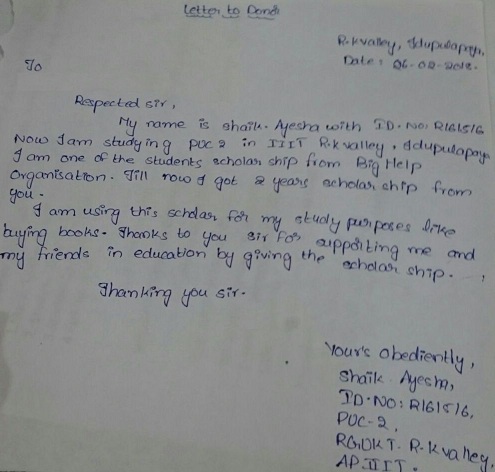 Letter to Donor
R.kvalley, Idupulapaya,
Date: 06-02-2018.
To
Respected sir,
My name is shaik. Ayesha with ID.No: R161516
Now I am studying PUC 2 in IIIT R.kvalley, Idupulapaya
I am one of the students scholar ship from Big Help
Organisation. Till now I got 2 years scholar ship from
you.
I am using this scholar for my study purposes like
buying books. Thanks to you sir for supporting me and
my friends in education by giving the scholar ship.
Thanking you sir.
Your's obediently,
Shaik Ayesha,
ID.NO: R161516,
PUC-2,
RGUKT R.kvalley,
AP IIIT.